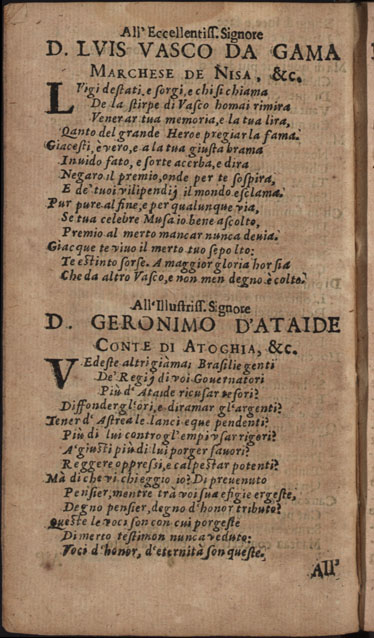 All'Eccellentiss. Signore
D. LVIS VASCO DA GAMA
MARCHESE DE NISA, &c.
LVigi destati, e sorgi, e chi si chiama
De la stirpe di Vasco homai rimira
Venerar tua memoria, e la tua lira,
Qanto del grande Heroe pregiar la fama.
Giacesti, è vero, e a la tua giusta brama
Inuido fato, e sorte acerba, e dira
Negaro il premio, onde per te sospira,
E de' tuoi vilipendij il mondo esclama.
Pur pure al fine, e per qualunque via,
Se tua celebre Musa io bene ascolto,
Premio al merto mancar nunca deuia.
Giacque te viuo il merto tuo sepolto;
Te estinto sorse. A maggior gloria hor sia
Che da altro Vasco, e non men degno è colto.
All'Illustriss. Signore
D. GERONIMO D'ATAIDE
CONTE DI ATOGHIA, &c.
VEdeste altri giamai Brasilie genti
De' Regij di voi Gouernatori
Più d'Ataide ricusar tesori?
Diffonder gl'ori, e diramar gl'argenti?
Tener d'Astrea le lanci eque pendenti?
Più di lui contro gl'empi vsar rigori?
A' giusti più di lui porger fauori?
Reggere oppressi, e calpestar potenti?
Mà di che vi chieggio io? Di preuenuto
Pensier, mentre trà voi sua efigie ergeste,
Degno pensier, degno d'honor tributo?
Queste le voci son con cui porgeste
Di merto testimon nunca veduto:
Voci d'honor, d'eternità son queste.
All'